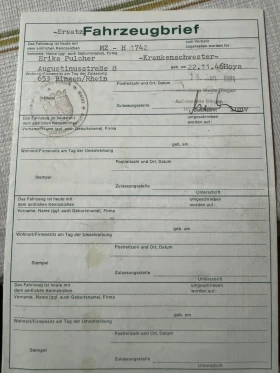 -Ersatz-
Fahrzeugbrief
Das Fahrzeug ist heute mit
dem amtlichen Kennzeichen
MZ - H 1742
zum Verkehr
zugelassen worden für
Vorname, Name (ggf. auch Geburtsname), Firma
Erika Pulcher -Krankenschwester-
Wohnort/Firmensitz am Tag der Zulassung
Augustinusstraße 8
geb. am 22.11.46Hoya
653 Bingen/Rhein
Postleitzahl und Ort, Datum
Zulassungsstelle
Unterschrift
Das Fahrzeug ist heute mit
dem amtlichen Kennzeichen
umgeschrieben
worden auf:
Vorname, Name (ggf. auch Geburtsname), Firma
geb. am
Wohnort/Firmensitz am Tag der Umschreibung
Postleitzahl und Ort, Datum
Stempel
Zulassungsstelle
Unterschrift
Das Fahrzeug ist heute mit
dem amtlichen Kennzeichen
umgeschrieben
worden auf:
Vorname, Name (ggf. auch Geburtsname), Firma
geb. am
Wohnort/Firmensitz am Tag der Umschreibung
Postleitzahl und Ort, Datum
Stempel
Zulassungsstelle
Unterschrift
Das Fahrzeug ist heute mit
dem amtlichen Kennzeichen
umgeschrieben
worden auf:
Vorname, Name (ggf. auch Geburtsname), Firma
geb. am
Wohnort/Firmensitz am Tag der Umschreibung
Postleitzahl und Ort, Datum
Stempel
Zulassungsstelle
Unterschrift